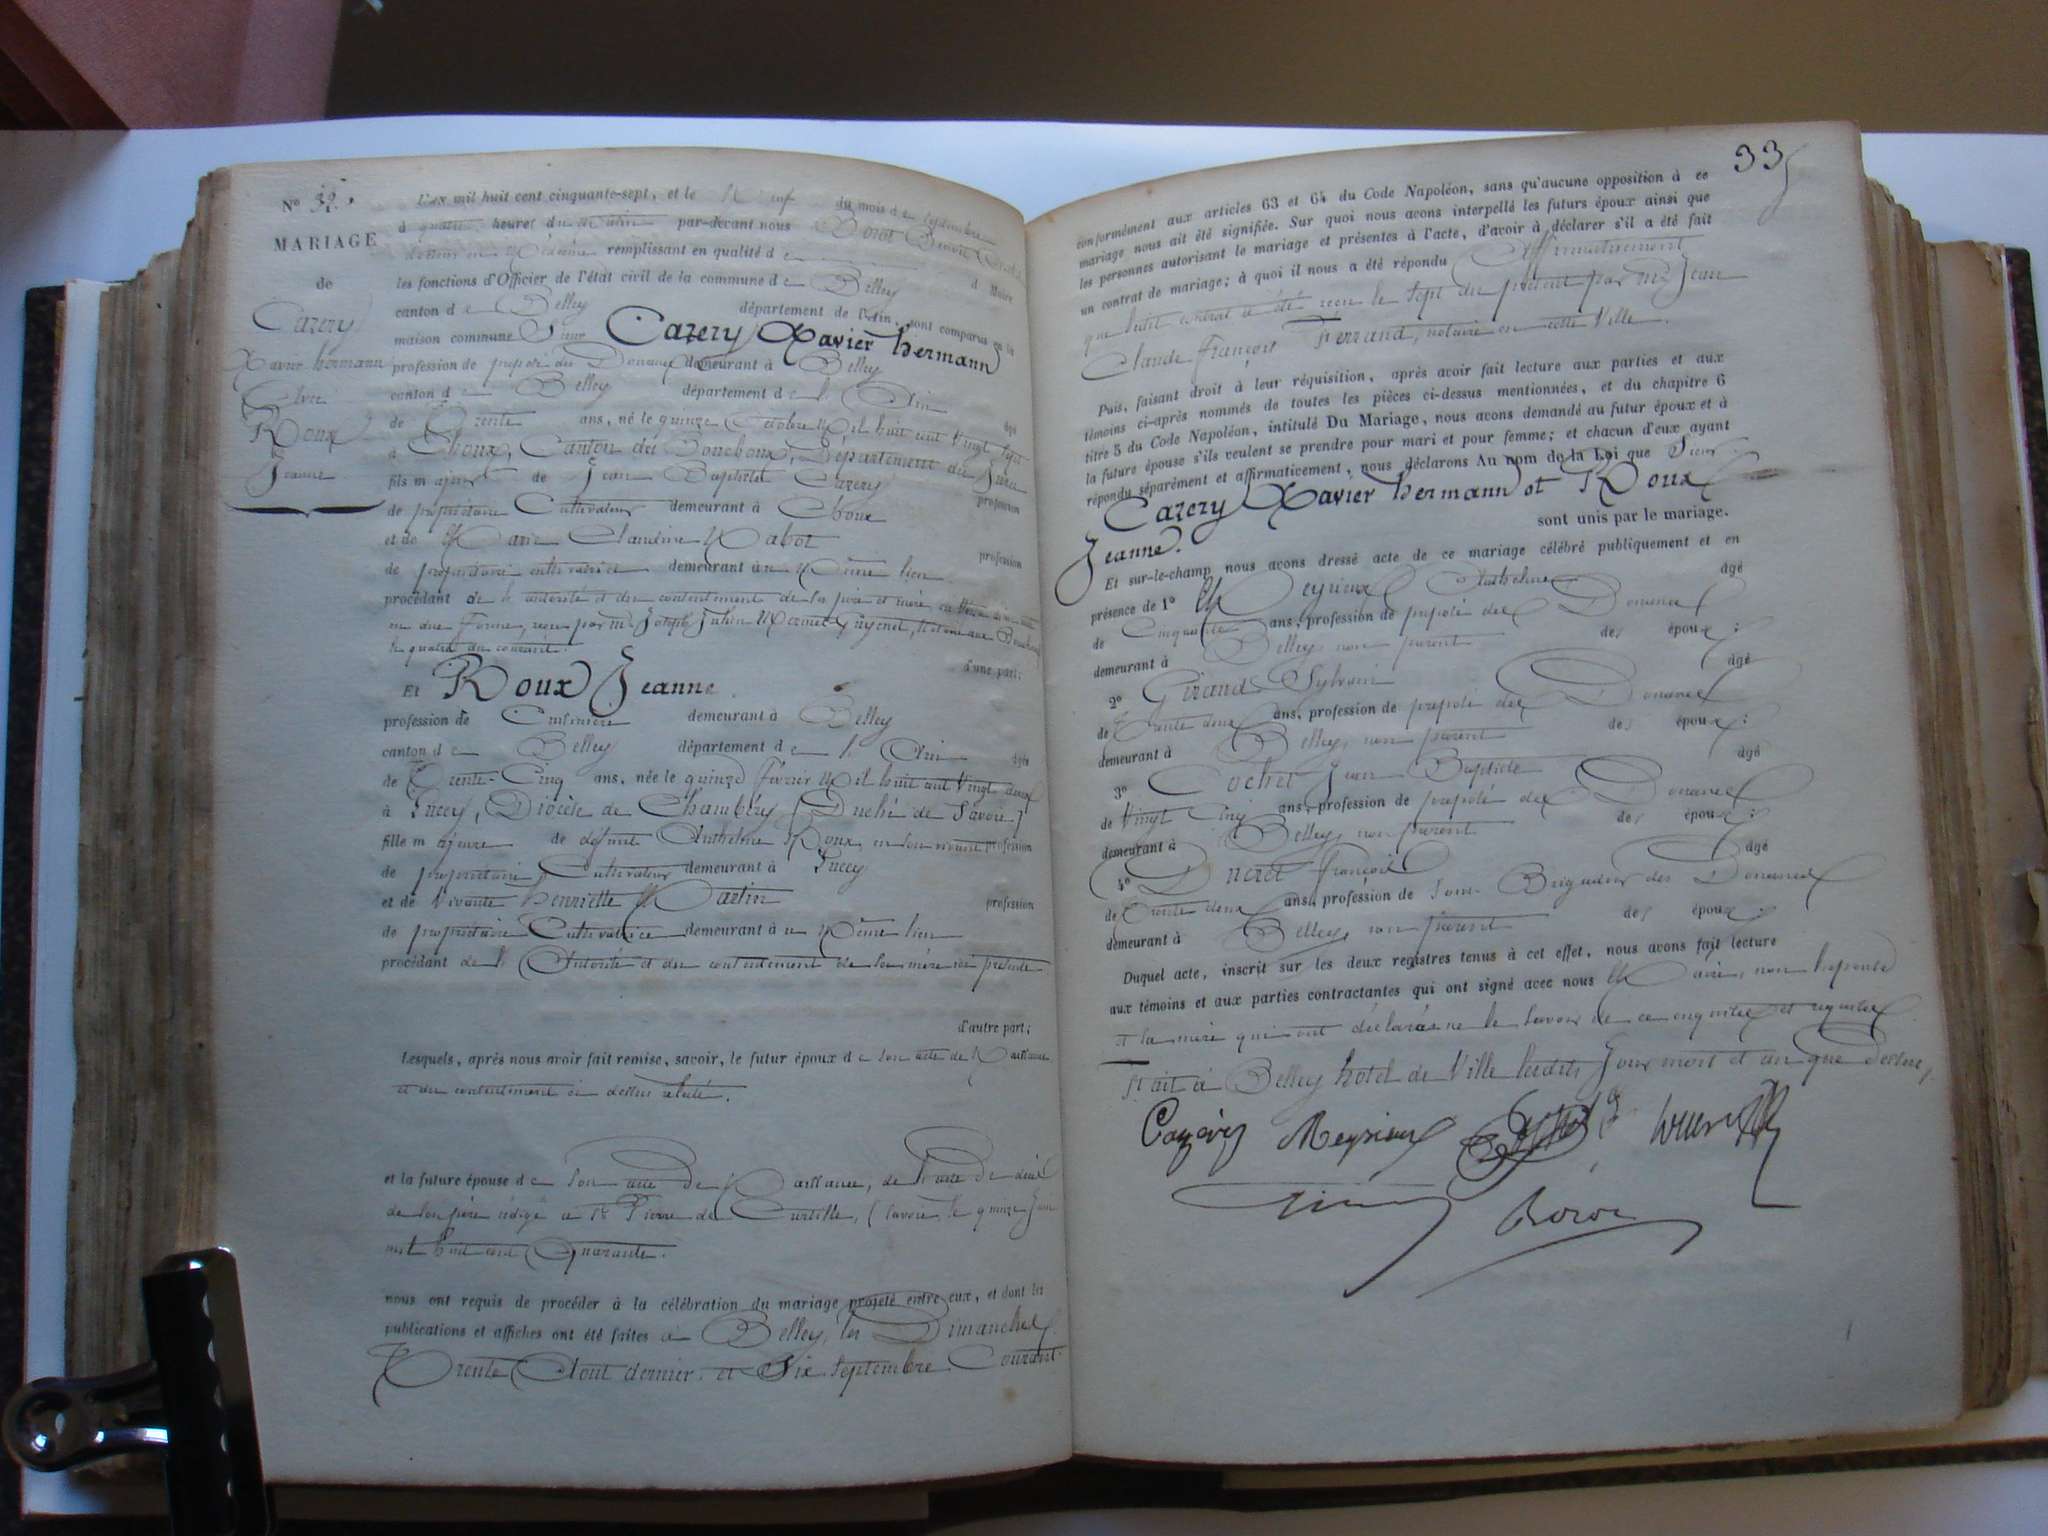 N° 32.
MARIAGE
de
Cazery
Xavier hermann
Avec
Roux
Jeanne
L'an mil huit cent cinquante-sept, et le Neuf du mois de Septembre
à quatre heures du Matin par-devant nous Borot Benoit
docteur en Médecine remplissant en qualité de Maire
les fonctions d'Officier de l'état civil de la commune de Belley
canton de Belley département de l'Ain, sont comparus en la
maison commune Sieur Cazery Xavier hermann
profession de préposé des Douanes demeurant à Belley
canton de Belley département de l'Ain âgé
de Trente ans, né le quinze Octobre Mil huit cent Vingt sept
à Choux, Canton des Bouchoux, Département du Jura
fils majeur de Jean Baptiste Cazery profession
de propriétaire Cultivateur demeurant à Choux
et de Marie Claudine Mabot profession
de propriétaire cultivatrice demeurant au Même lieu
procédant de l'autorité et du contentement de ses père et mère
en due forme, reçu par Me Joseph Julien notaire aux Bouchoux
le quatre du courant. d'une part;
Et Roux Jeanne
profession de Cuisinière demeurant à Belley
canton de Belley département de l'Ain âgée
de Trente-Cinq ans, née le quinze février Mil huit cent Vingt deux
à Lucey, Diocèse de Chambéry (Duché de Savoie)
fille majeure de défunt Anthelme Roux en son vivant profession
de propriétaire Cultivateur demeurant à Lucey
et de Vivante henriette Martin profession
de propriétaire Cultivatrice demeurant au Même lieu
procédant de l'Autorité et du contentement de sa mère ici présente
d'autre part;
Lesquels, après nous avoir fait remise, savoir, le futur époux de son acte de Naissance
et du contentement ci dessus relaté.
et la future épouse de son acte de Naissance, de l'acte de décès
de son père rédigé à St Pierre de Curtille, (Savoie) le quinze Juin
mil huit cent Quarante.
nous ont requis de procéder à la célébration du mariage projeté entre eux, et dont les
publications et affiches ont été faites à Belley, les Dimanches
Trente Aout dernier et Six Septembre Courant
33
conformément aux articles 63 et 64 du Code Napoléon, sans qu'aucune opposition à ce
mariage nous ait été signifiée. Sur quoi nous avons interpellé les futurs époux ainsi que
les personnes autorisant le mariage et présentes à l'acte, d'avoir à déclarer s'il a été fait
un contrat de mariage; à quoi il nous a été répondu Affirmativement
que ledit contrat a été reçu le Sept du présent par Me Jean
Claude françois Ferrand, notaire en cette Ville.
Puis, faisant droit à leur réquisition, après avoir fait lecture aux parties et aux
témoins ci-après nommés de toutes les pièces ci-dessus mentionnées, et du chapitre 6
titre 5 du Code Napoléon, intitulé Du Mariage, nous avons demandé au futur époux et à
la future épouse s'ils veulent se prendre pour mari et pour femme; et chacun d'eux ayant
répondu séparément et affirmativement, nous déclarons Au nom de la Loi que Sieur
Cazery Xavier hermann et Roux
Jeanne. sont unis par le mariage.
Et sur-le-champ nous avons dressé acte de ce mariage célébré publiquement et en
présence de 1° Meyrieux Anthelme âgé
de Cinquante ans, profession de préposé des Douanes
demeurant à Belley, non parent des époux;
2° Girand Sylvain âgé
de Trente deux ans, profession de préposé des Douanes
demeurant à Belley, non parent des époux;
3° Cochet Jean Baptiste âgé
de Vingt Cinq ans, profession de préposé des Douanes
demeurant à Belley, non parent des époux;
4° Ducret françois âgé
de Trente deux ans, profession de Sous Brigadier des Douanes
demeurant à Belley, non parent des époux
Duquel acte, inscrit sur les deux registres tenus à cet effet, nous avons fait lecture
aux témoins et aux parties contractantes qui ont signé avec nous Maire, non l'épouse
et la mère qui ont déclarés ne le savoir de ce enquises et requises
Fait à Belley hotel de Ville lesdits Jour mois et an que dessus,
Cazéry Meyrieux
Borot